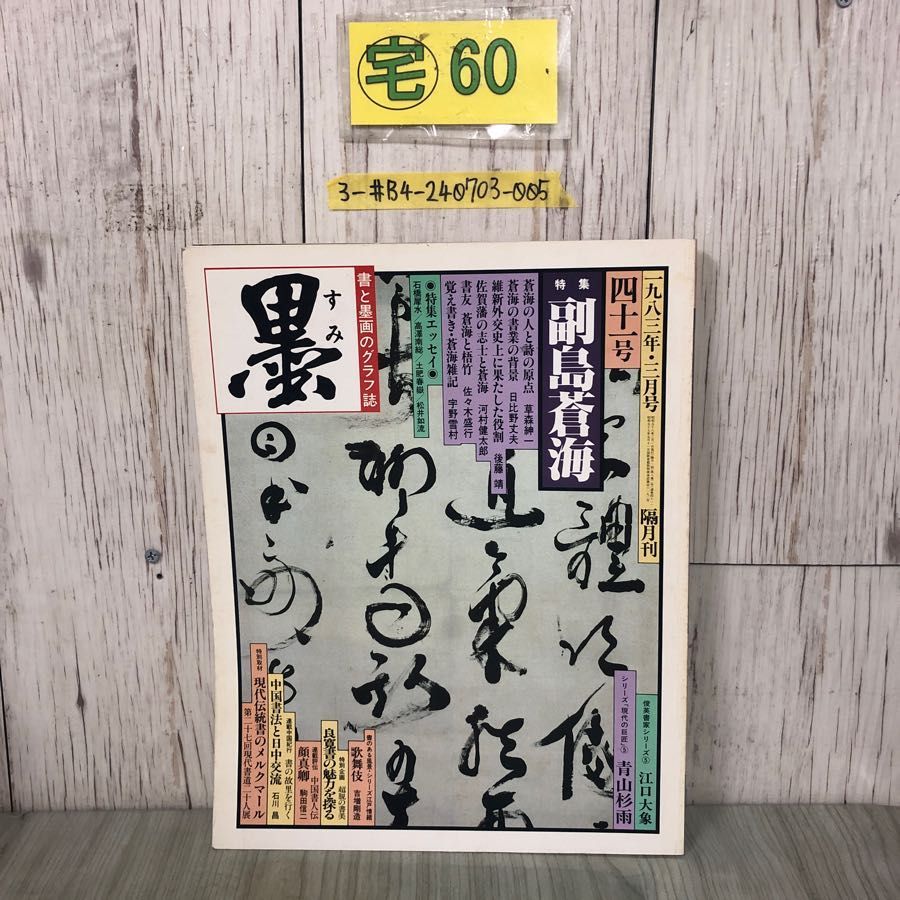 宅 60
3-#B4-240703-005
一九八三年・三月号
隔月刊
四十一号
特集
副島蒼海
蒼海の人と詩の原点 草森紳一
蒼海の書業の背景 日比野丈夫
維新外交史上に果たした役割 後藤 靖
佐賀藩の志士と蒼海 河村健太郎
書友 蒼海と梧竹 佐々木盛行
覚え書き・蒼海雑記 宇野雪村
◉特集エッセイ◉
石橋犀水/高澤南総/土肥春嶽/松井如流
書と墨画のグラフ誌
墨
すみ
俊英書家シリーズ⑤ 江口大象
シリーズ「現代の巨匠」⑤ 青山杉雨
書のある風景・シリーズ江戸情緒
歌舞伎 吉増剛造
特別企画 超脱の書美
良寛書の魅力を探る
連載評伝 中国書人伝
顔真卿 駒田信二
連載中国紀行 書の故里を行く
中国書法と日中交流 石川 昌
特別取材 現代伝統書のメルクマール
第二十七回現代書道二十人展